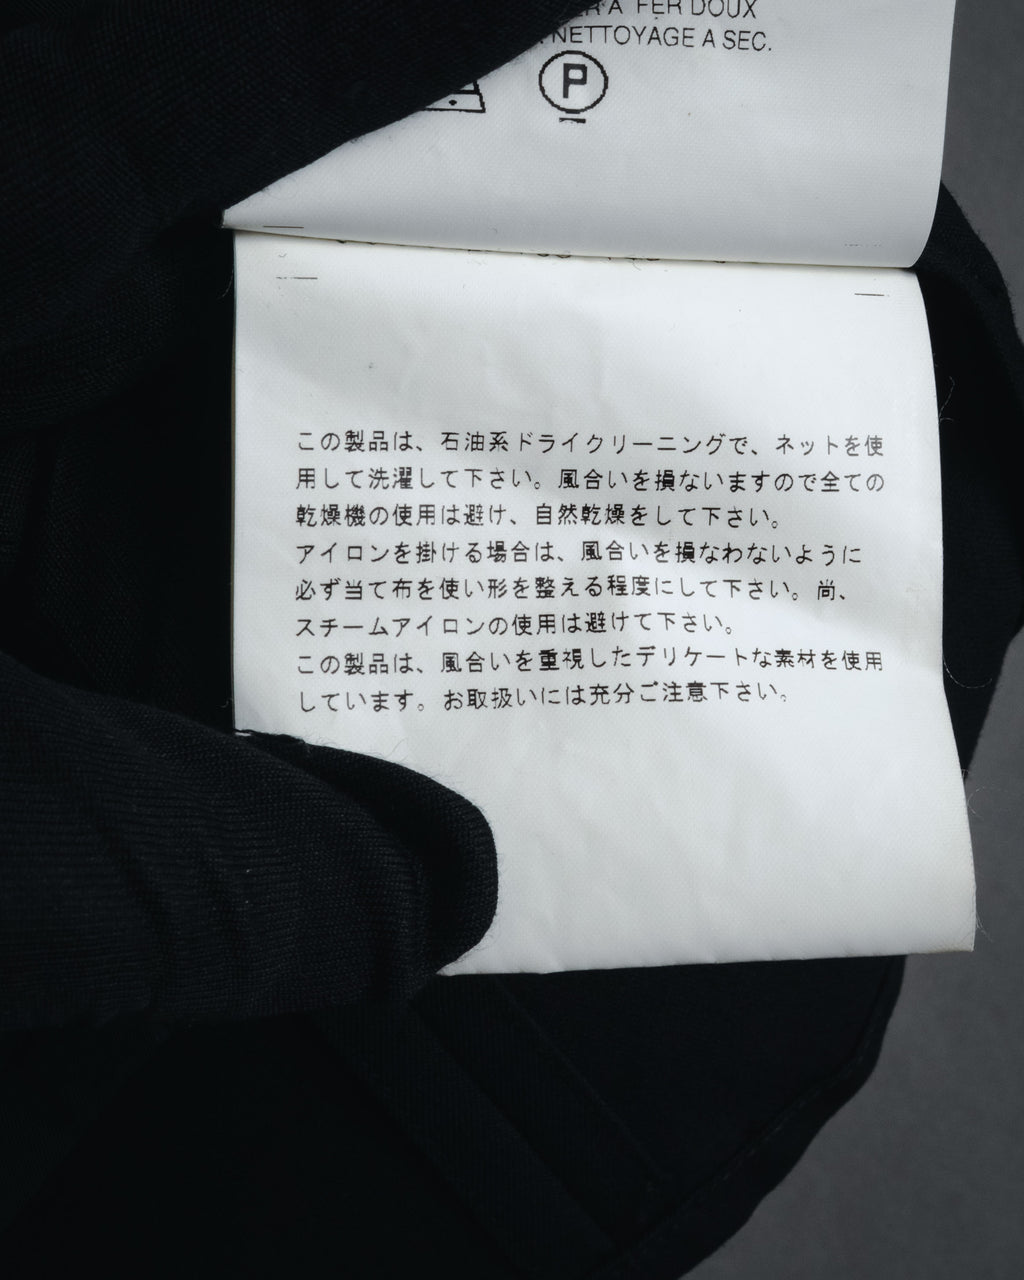 A FER DOUX
NETTOYAGE A SEC.
P
この製品は、石油系ドライクリーニングで、ネットを使
用して洗濯して下さい。風合いを損ないますので全ての
乾燥機の使用は避け、自然乾燥をして下さい。
アイロンを掛ける場合は、風合いを損なわないように
必ず当て布を使い形を整える程度にして下さい。尚、
スチームアイロンの使用は避けて下さい。
この製品は、風合いを重視したデリケートな素材を使用
しています。お取扱いには充分ご注意下さい。